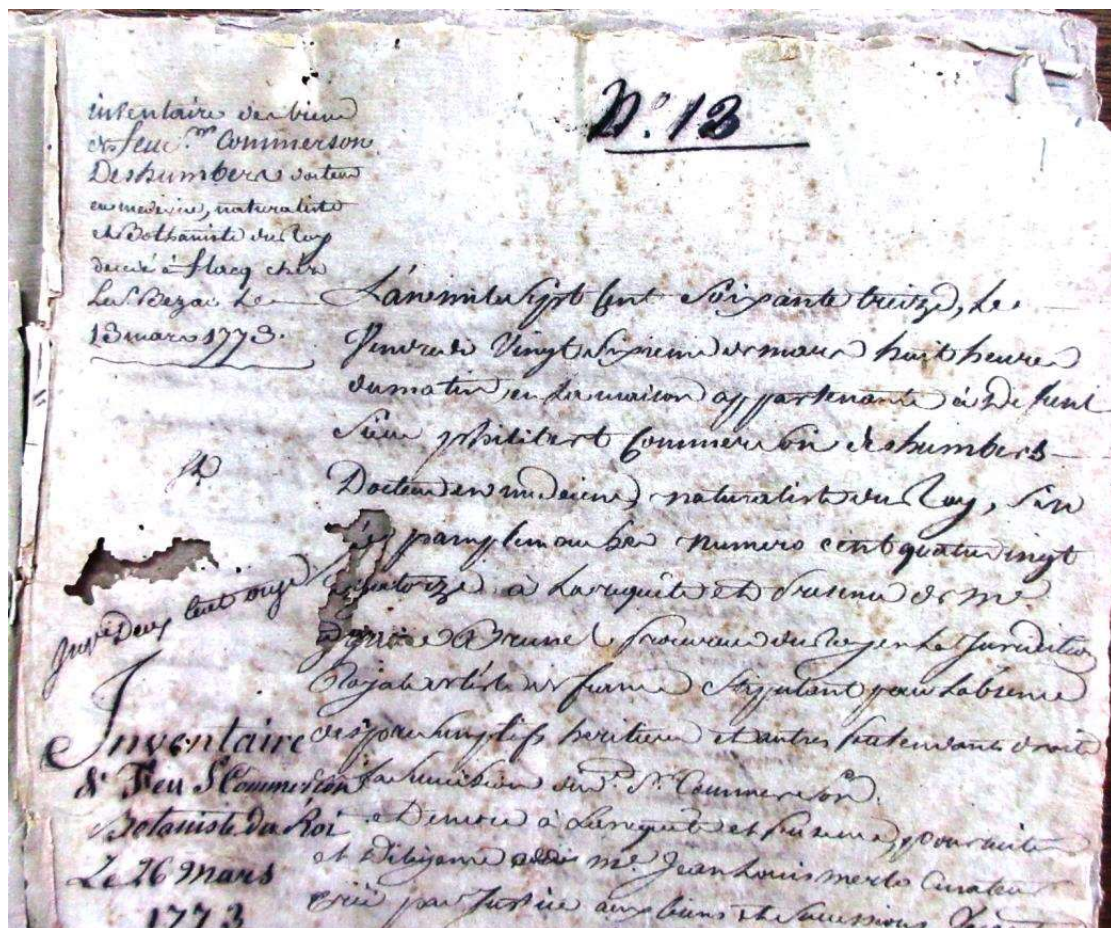 N.º 13
inventaire des biens
de feu M.r Commerson
Deshumbers docteur
en medecine, naturaliste
et Bothaniste du Roy
decedé à flacq chés
Le S Bezac Le
13 mars 1773.
L'an mil sept Cent Soixante treize, Le
Vendredi Vingt Sixieme de mars huit heures
du matin, en La maison appartenante à Defunt
Sieur philibert Commerson deshumbers
Docteur en medecine, naturaliste du Roy, Size
pamplemousses numero cent quatre vingt
quatorze à La requête et presence de M.e
Brunel Procureur du Roy en La Jurisdiction
Royale de L'isle de france Stipulant pour L'absence
des presomptifs heritiers et autres pretendants droit
à La succession dud. S.r Commerson.
et Encore à La requête et presence, poursuite
et diligence de M.e Jean Louis merle Curateur
créé par Justice aux biens et Successions
Deux Cent onze
Inventaire
de Feu S Commerson
Botaniste du Roi
Le 26 Mars
1773